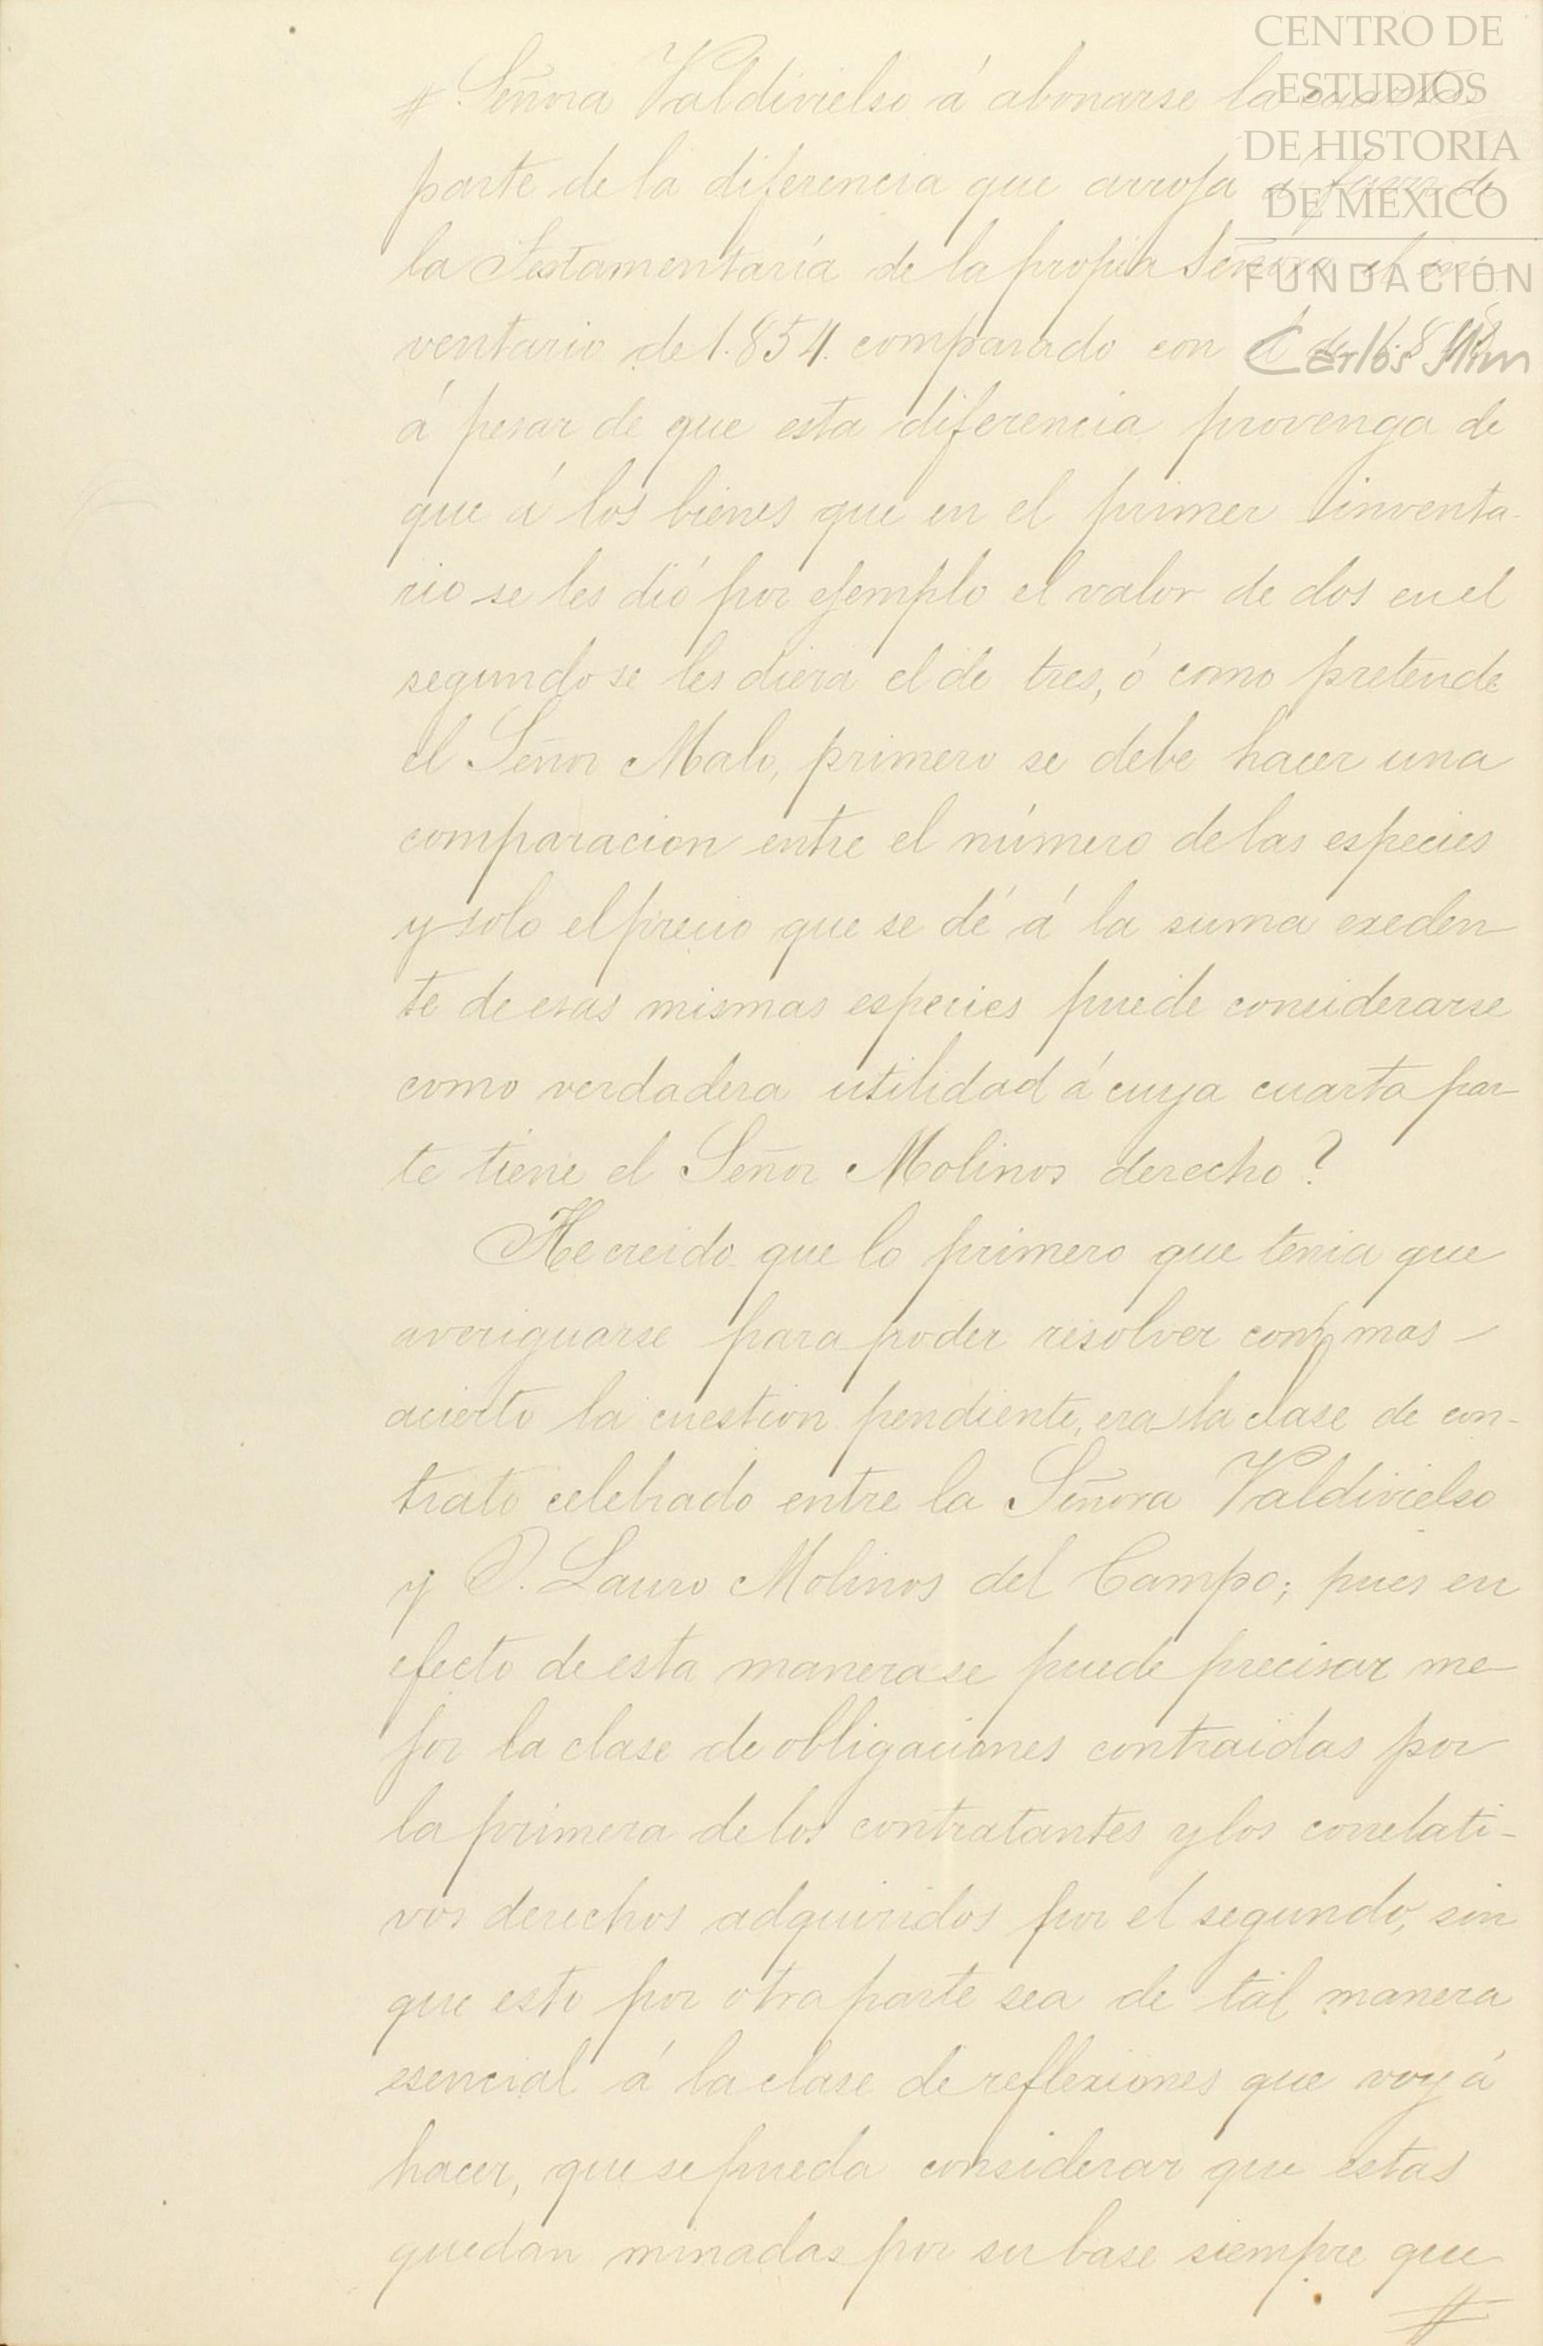 CENTRO DE
ESTUDIOS
DE HISTORIA
DE MEXICO
FUNDACION
Carlos Slim
# Señora Valdivielso á abonarse la cuarta
parte de la diferencia que arroja á favor de
la Testamentaría de la propia Señora el in-
ventario de 1.854. comparado con
á pesar de que esta diferencia provenga de
que á los bienes que en el primer inventa-
rio se les dió por ejemplo el valor de dos en el
segundo se les diera el de tres, ó como pretende
el Señor Malo, primero se debe hacer una
comparacion entre el número de las especies
y solo el precio que se dé á la suma exeden-
te de esas mismas especies puede considerarse
como verdadera utilidad á cuya cuarta par-
te tiene el Señor Molinos derecho?
He creido que lo primero que tenia que
averiguarse para poder resolver con mas
acierto la cuestion pendiente, era la clase de con-
trato celebrado entre la Señora Valdivielso
y D. Lauro Molinos del Campo; pues en
efecto de esta manera se puede precisar me-
jor la clase de obligaciones contraidas por
la primera de los contratantes y los correlati-
vos derechos adquiridos por el segundo, sin
que esto por otra parte sea de tal manera
esencial á la clase de reflexiones que voy á
hacer, que se pueda considerar que estas
quedan minadas por su base siempre que
#